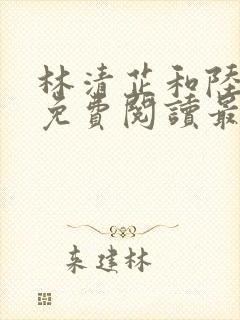 林清芷和陸
免費閱讀最
来建林